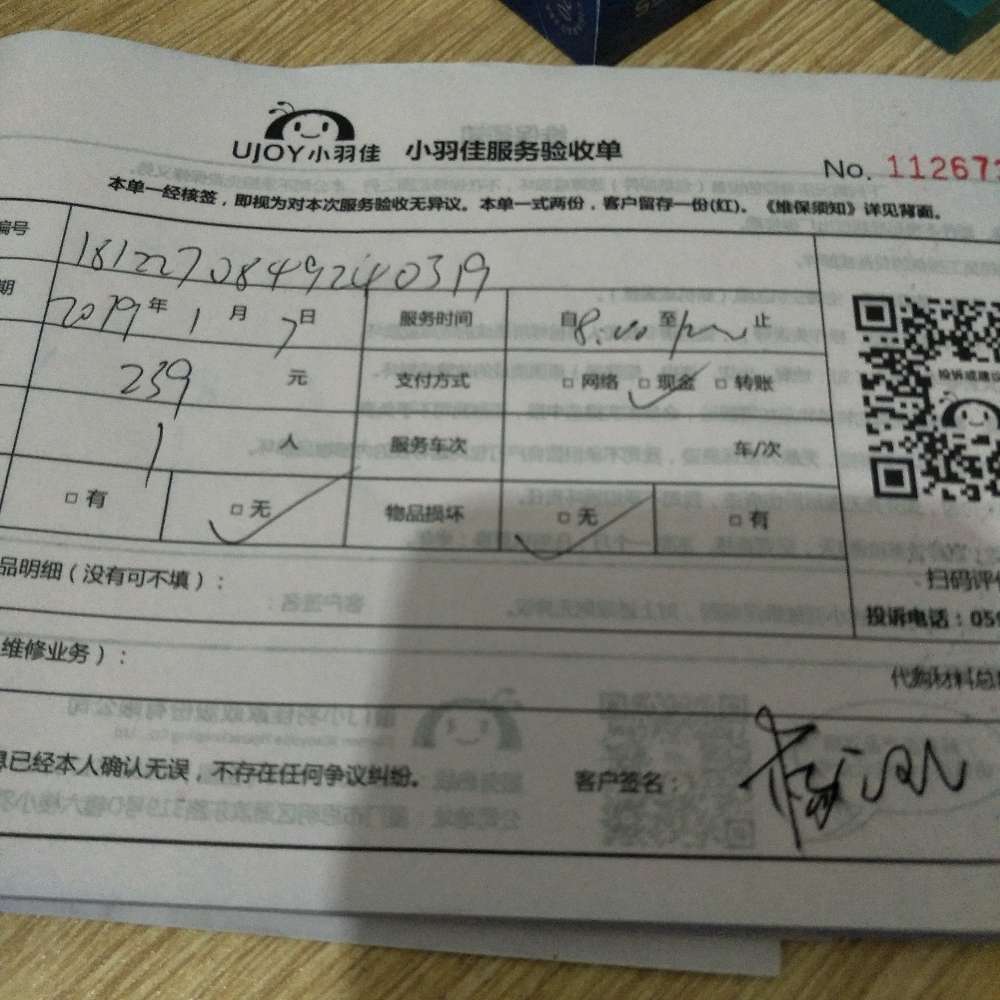 UJOY小羽佳 小羽佳服务验收单
No. 112671
本单一经核签，即视为对本次服务验收无异议。本单一式两份，客户留存一份(红)。《维保须知》详见背面。
编号 1812270849240319
期 2019年1月7日 服务时间 自8:00至 止
239元 支付方式 □网络 □现金 □转账
投诉或建议
1人 服务车次 车/次
□有 □无 物品损坏 □无 □有
品明细（没有可不填）：
扫码评价
投诉电话：059
维修业务）：
代购材料总
息已经本人确认无误，不存在任何争议纠纷。 客户签名：